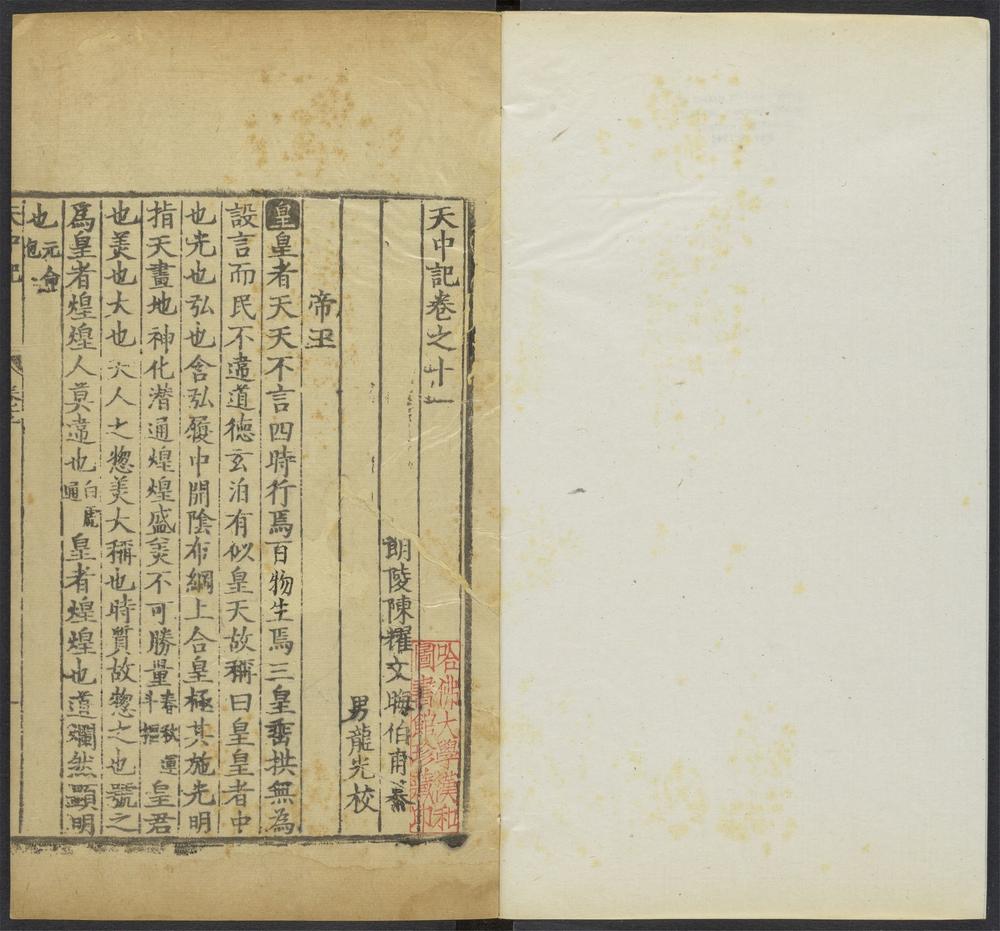 天中記卷之十一
朗陵陳耀文晦伯甫纂
男龍光校
帝王
皇皇者天天不言四時行焉百物生焉三皇垂拱無為
設言而民不違道德玄泊有似皇天故稱曰皇皇者中
也光也弘也含弘履中開陰布綱上合皇極其施光明
指天畫地神化潛通煌煌盛美不可勝量春秋運斗樞皇君
也美也大也天人之惣美大稱也時質故惣之也號之
為皇者煌煌人莫違也白虎通皇者煌煌也道爛然顯明
也元命包
天中記
哈佛大學漢和
圖書館珍藏印